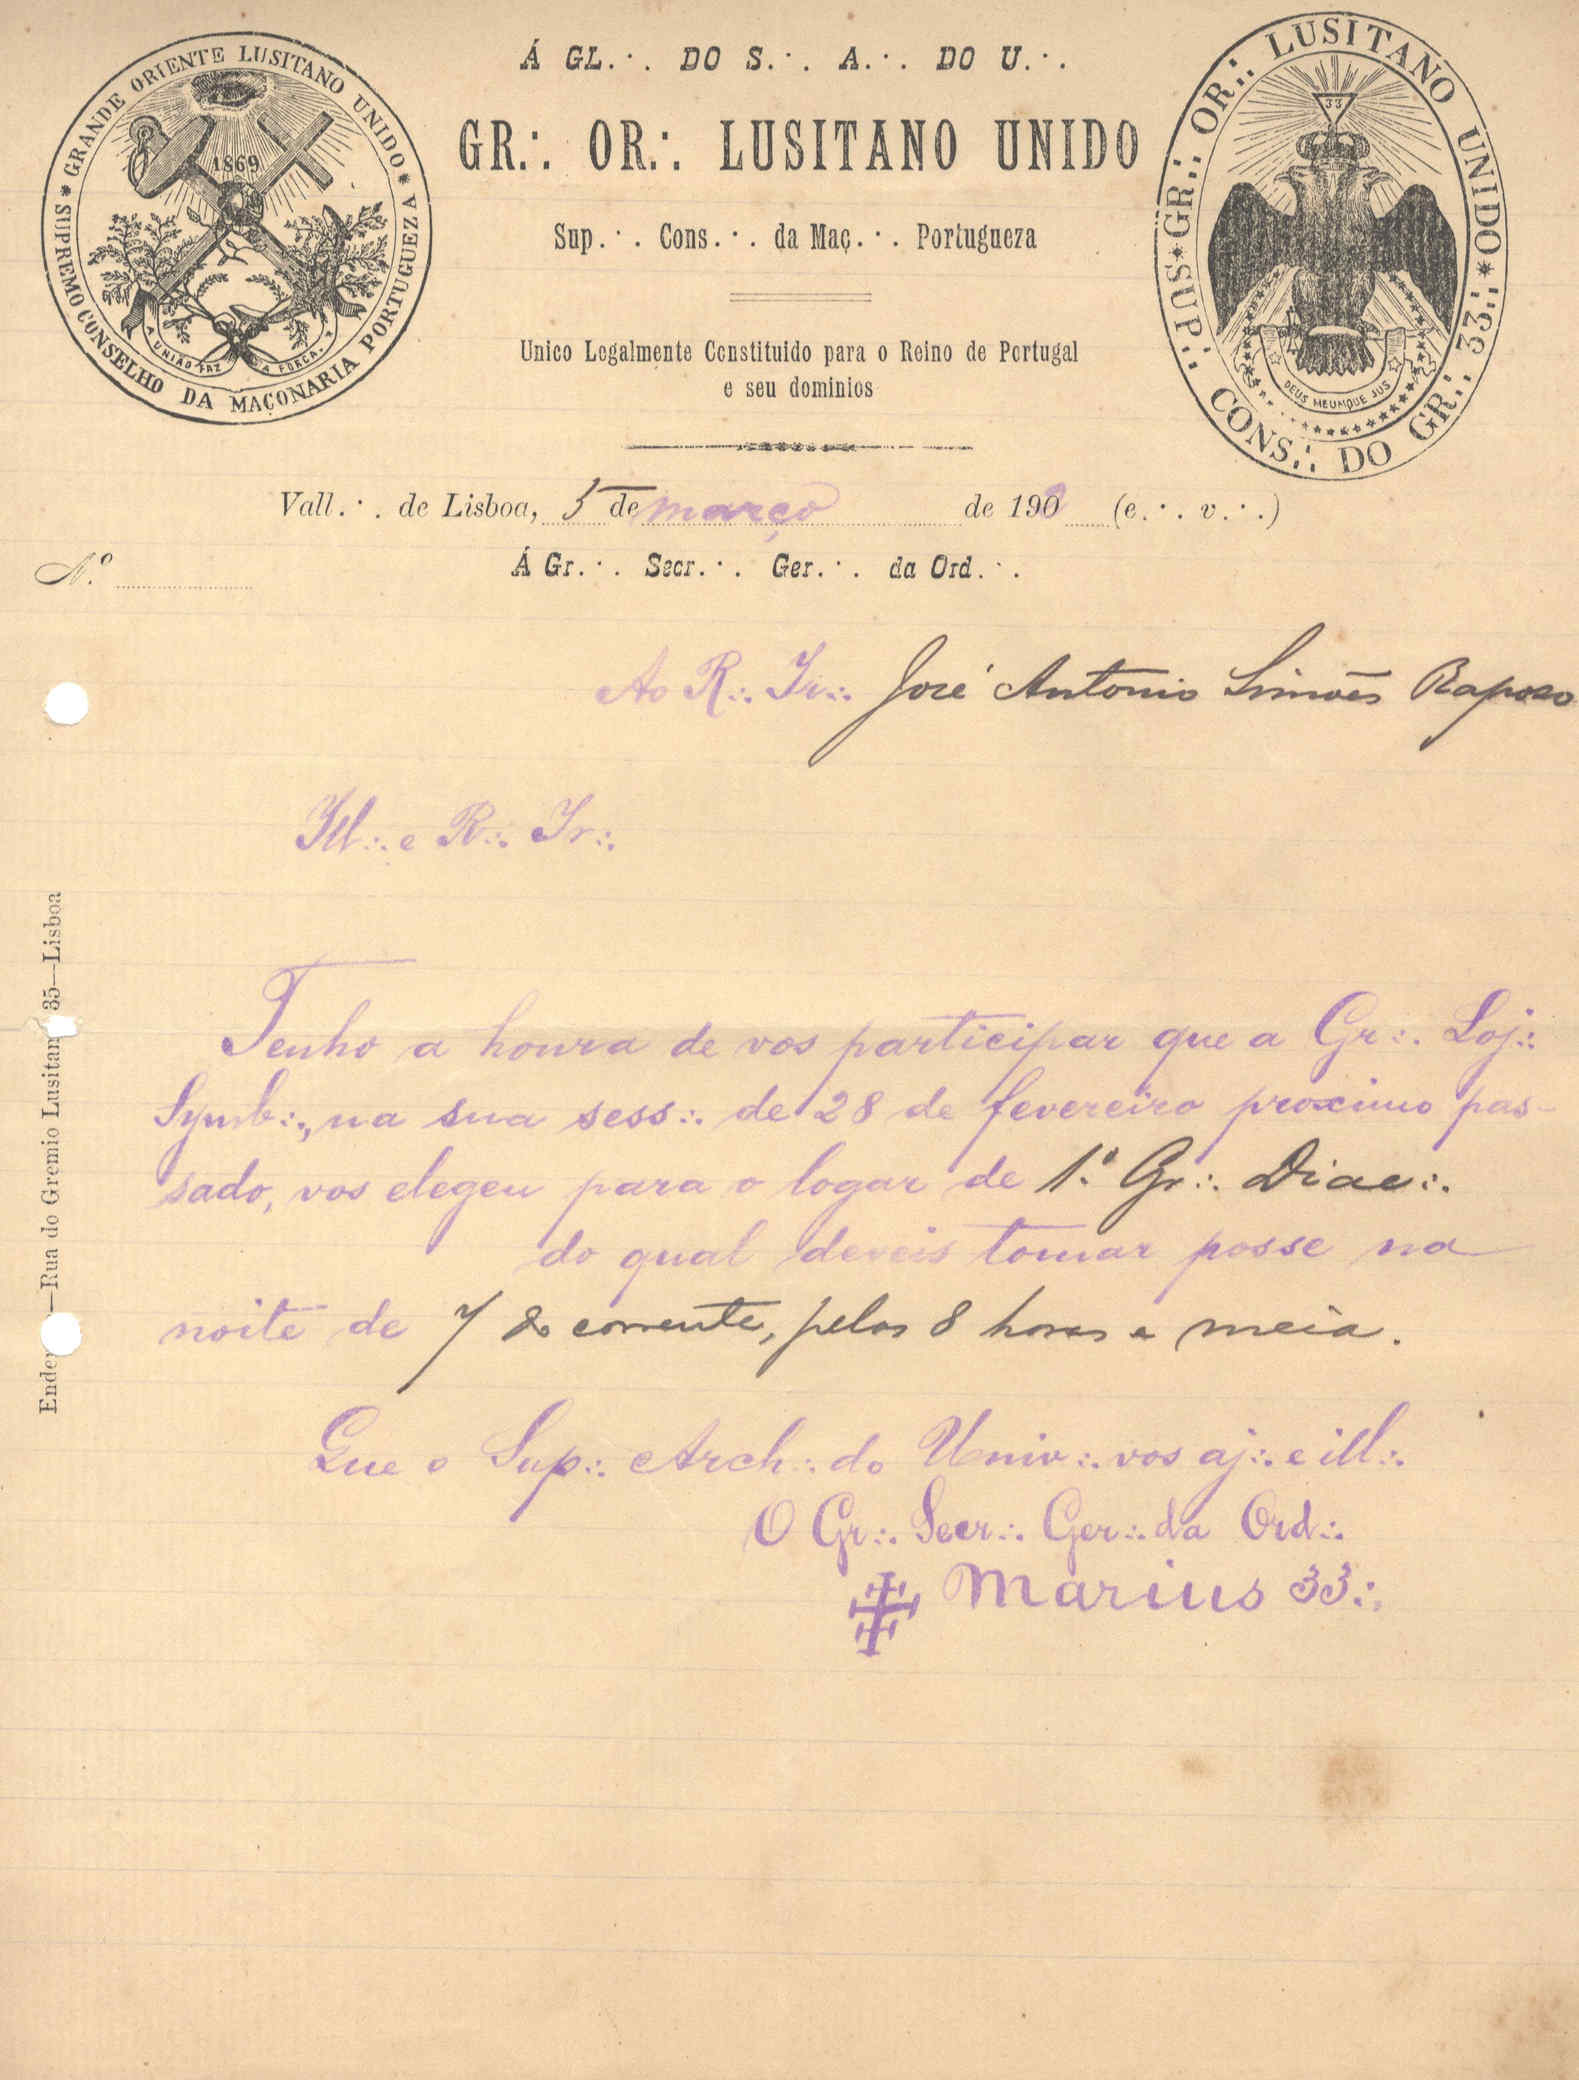 Á GL.·. DO S.·. A.·. DO U.·.
GR.·. OR.·. LUSITANO UNIDO
Sup.·. Cons.·. da Maç.·. Portugueza
Unico Legalmente Constituido para o Reino de Portugal
e seu dominios
GRANDE ORIENTE LUSITANO UNIDO
SUPREMO CONSELHO DA MAÇONARIA PORTUGUEZA
1869
A UNIÃO FAZ A FORÇA
GR.·. OR.·. LUSITANO UNIDO
SUP.·. CONS.·. DO GR.·. 33.·.
33
DEUS MEUMQUE JUS
Vall.·. de Lisboa, 5 de março de 190 (e.·. v.·.)
N.º
Á Gr.·. Secr.·. Ger.·. da Ord.·.
Ao R.·. Ir.·. José Antonio Simões Raposo
Ill.·. e R.·. Ir.·.
Tenho a honra de vos participar que a Gr.·. Loj.·.
Symb.·., na sua sess.·. de 28 de fevereiro proximo pas-
sado, vos elegeu para o logar de 1.º Gr.·. Diac.·.
do qual deveis tomar posse na
noite de 7 do corrente, pelas 8 horas e meia.
Que o Sup.·. Arch.·. do Univ.·. vos aj.·. e ill.·.
O Gr.·. Secr.·. Ger.·. da Ord.·.
Marius 33.·.
Ender —Rua do Gremio Lusitan 35—Lisboa